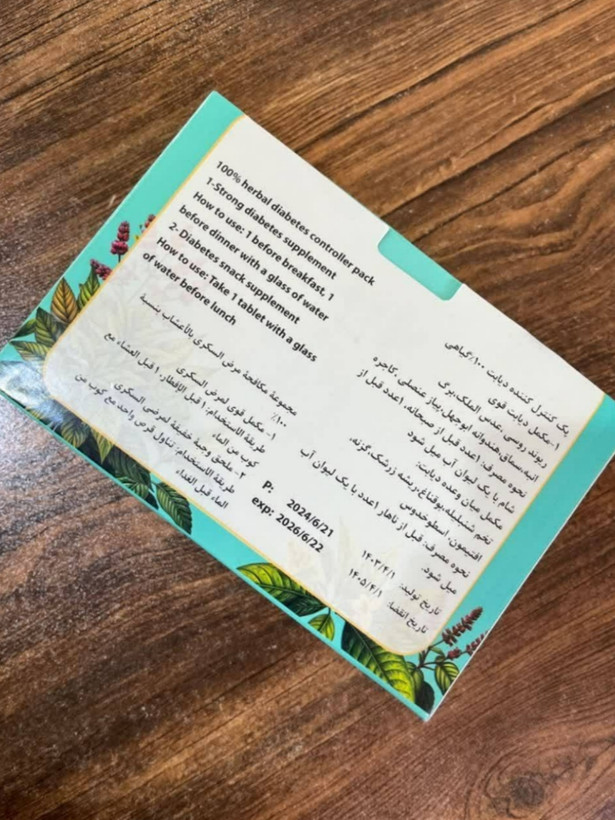 100% herbal diabetes controller pack
1-Strong diabetes supplement
How to use: 1 before breakfast, 1
before dinner with a glass of water
2-Diabetes snack supplement
How to use: Take 1 tablet with a glass
of water before lunch
مجموعة مكافحة مرض السكري بالأعشاب بنسبة
١٠٠٪
١- مكمل قوى لمرض السكري
طريقة الاستخدام: ١ قبل الإفطار، ١ قبل العشاء مع
كوب من الماء
٢- ملحق وجبة خفيفة لمرضى السكري
طريقة الاستخدام: تناول قرص واحد مع كوب من
الماء قبل الغداء
P: 2024/6/21
exp: 2026/6/22
پک کنترل کننده دیابت ۱۰۰٪ گیاهی
۱-مکمل دیابت قوی
ریوند روسی، عدس الملک، برگ
انبه، سماق، هندوانه ابوجهل، پیاز عنصلی، کاجره
نحوه مصرف: ۱عدد قبل از صبحانه، ۱عدد قبل از
شام با یک لیوان آب میل شود
مکمل میان وعده دیابت:
تخم شنبلیله، یوقناع، ریشه زرشک، گزنه،
افتیمون، اسطوخدوس
نحوه مصرف: قبل از ناهار ۱عدد با یک لیوان آب
میل شود.
تاریخ تولید: ۱۴۰۳/۴/۱
تاریخ انقضا: ۱۴۰۵/۴/۱